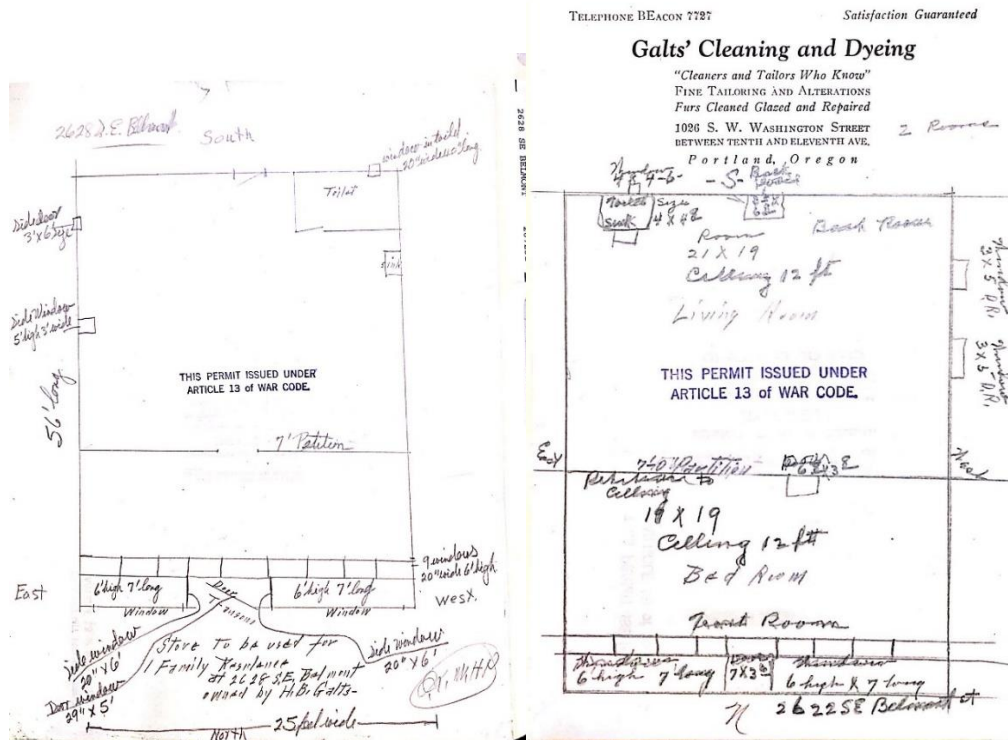 2628 S.E. Belmont
South
window in toilet
20" wide 40" long
Toilet
Side door
3' x 6' Size
Sink
Side Window
5' high 3' wide
56' long
THIS PERMIT ISSUED UNDER
ARTICLE 13 of WAR CODE.
7' Petition
9 windows
20" wide 6' high
East
6' high 7' long
Door
Transom
6' high 7' long
West.
Window
Window
Side window
20" x 6'
Side window
20" x 6'
Door window
29" x 5'
Store To be used for
1 Family Residence
at 2628 S.E. Belmont
owned by H.B. Galts-
25 feet wide
North
2628 SE BELMONT
TELEPHONE BEACON 7727
Satisfaction Guaranteed
Galts' Cleaning and Dyeing
"Cleaners and Tailors Who Know"
FINE TAILORING AND ALTERATIONS
Furs Cleaned Glazed and Repaired
1026 S. W. WASHINGTON STREET
BETWEEN TENTH AND ELEVENTH AVE.
Portland, Oregon
2 Rooms
Window
- S -
Back
Toilet
Sink
Size
Room
21 X 19
Ceiling 12 ft
Living Room
Back Room
Window
3 x 5
Window
3 x 5
THIS PERMIT ISSUED UNDER
ARTICLE 13 of WAR CODE.
East
West
Partition
to
Ceiling
19
Celling 12 ft
Bed Room
Front Room
Windows
6 high 7 long
Door
Windows
6 high x 7 long
N
2622 SE Belmont st